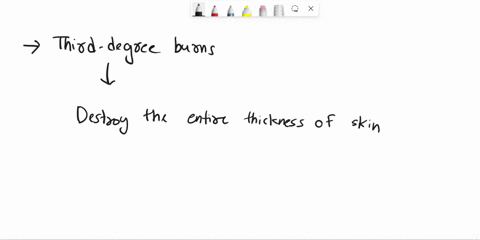 → Third-degree burns
↓
Destroy the entire thickness of skin